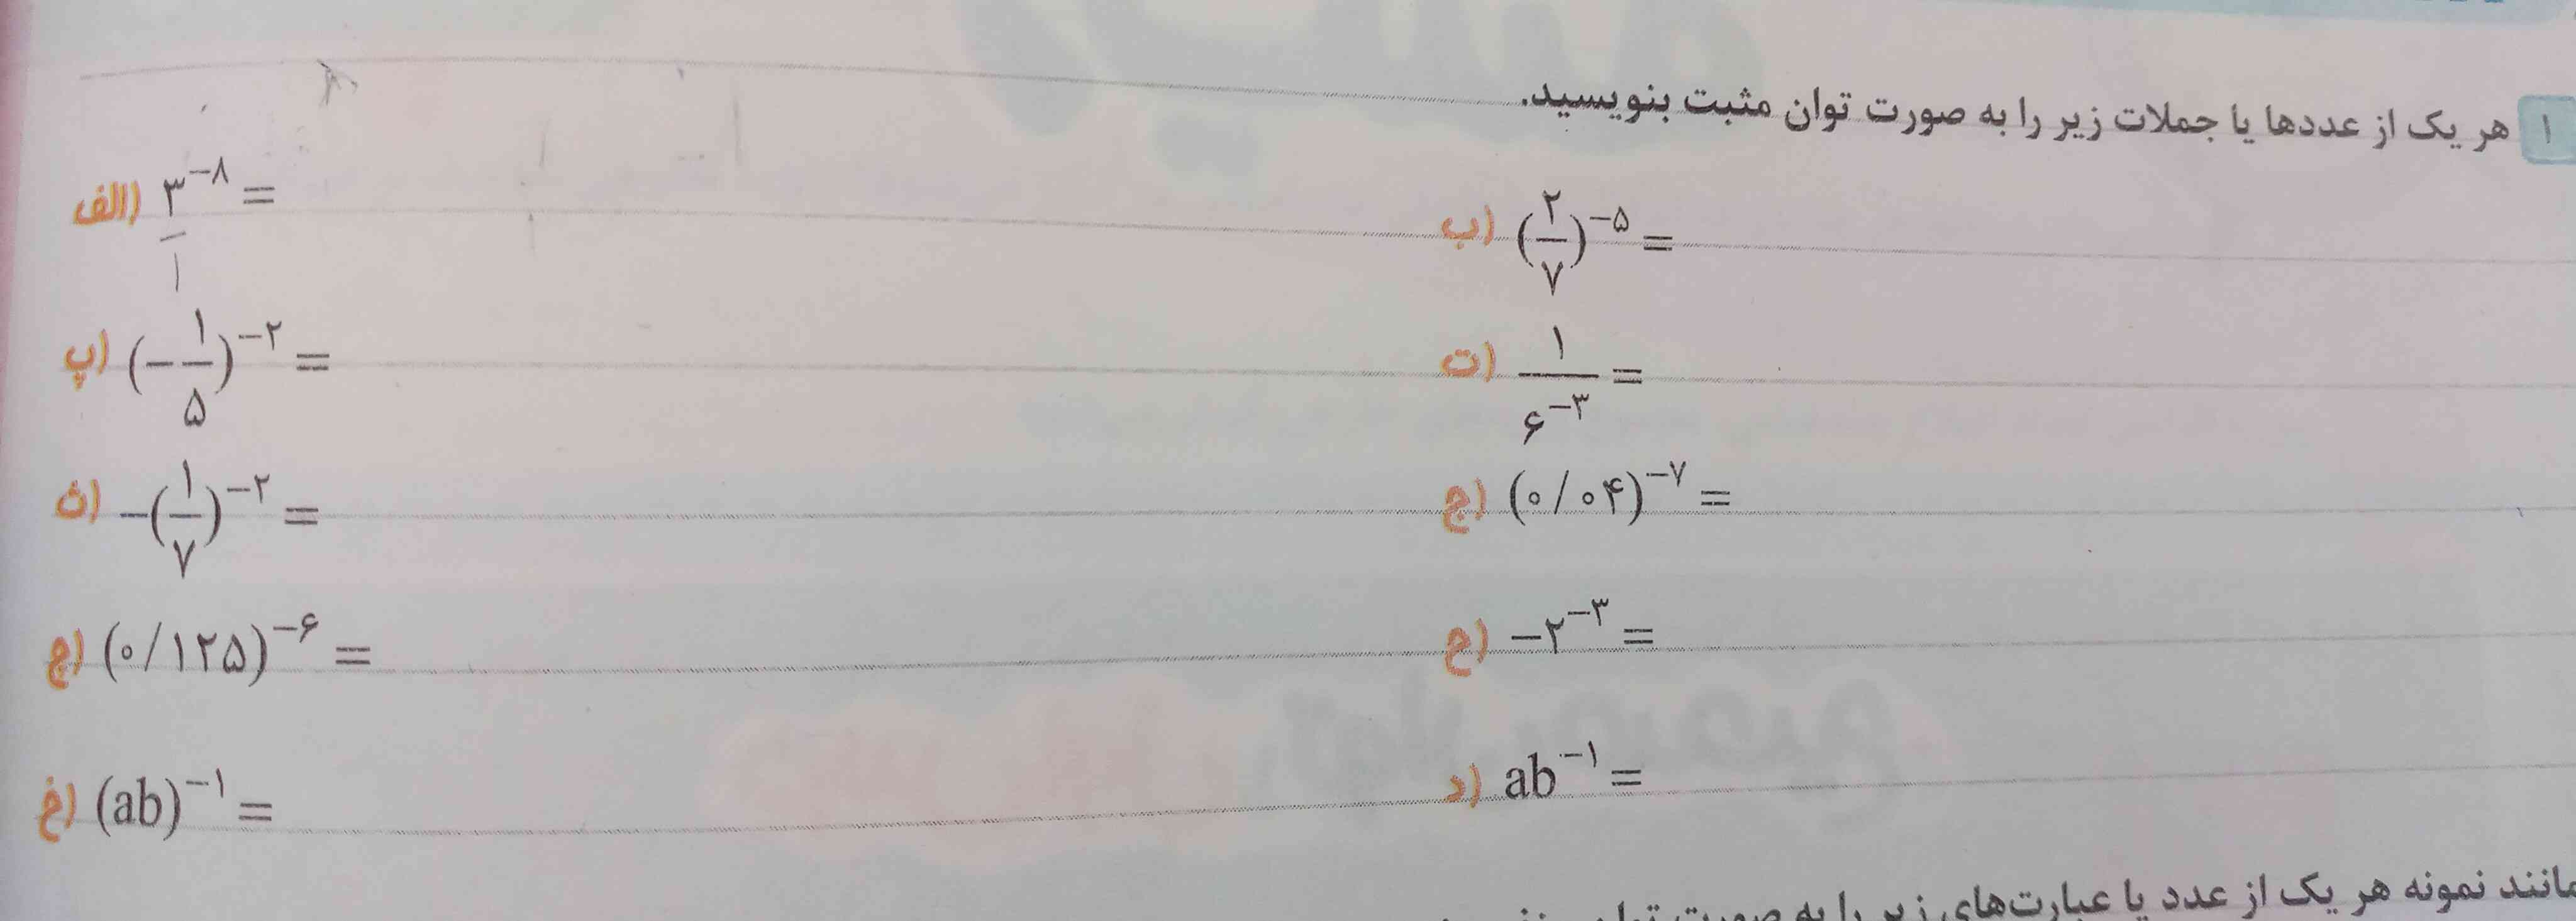 ۱ هر یک از عددها یا جملات زیر را به صورت توان مثبت بنویسید.
الف) ۳^{-۸} =
ب) (۲/۷)^{-۵} =
پ) (-۱/۵)^{-۲} =
ت) ۱/۶^{-۳} =
ث) -(۱/۷)^{-۲} =
ج) (۰/۰۴)^{-۷} =
چ) (۰/۱۲۵)^{-۶} =
ح) -۲^{-۳} =
خ) (ab)^{-۱} =
د) ab^{-۱} =
مانند نمونه هر یک از عدد یا عبارت‌های زیر را به صورت